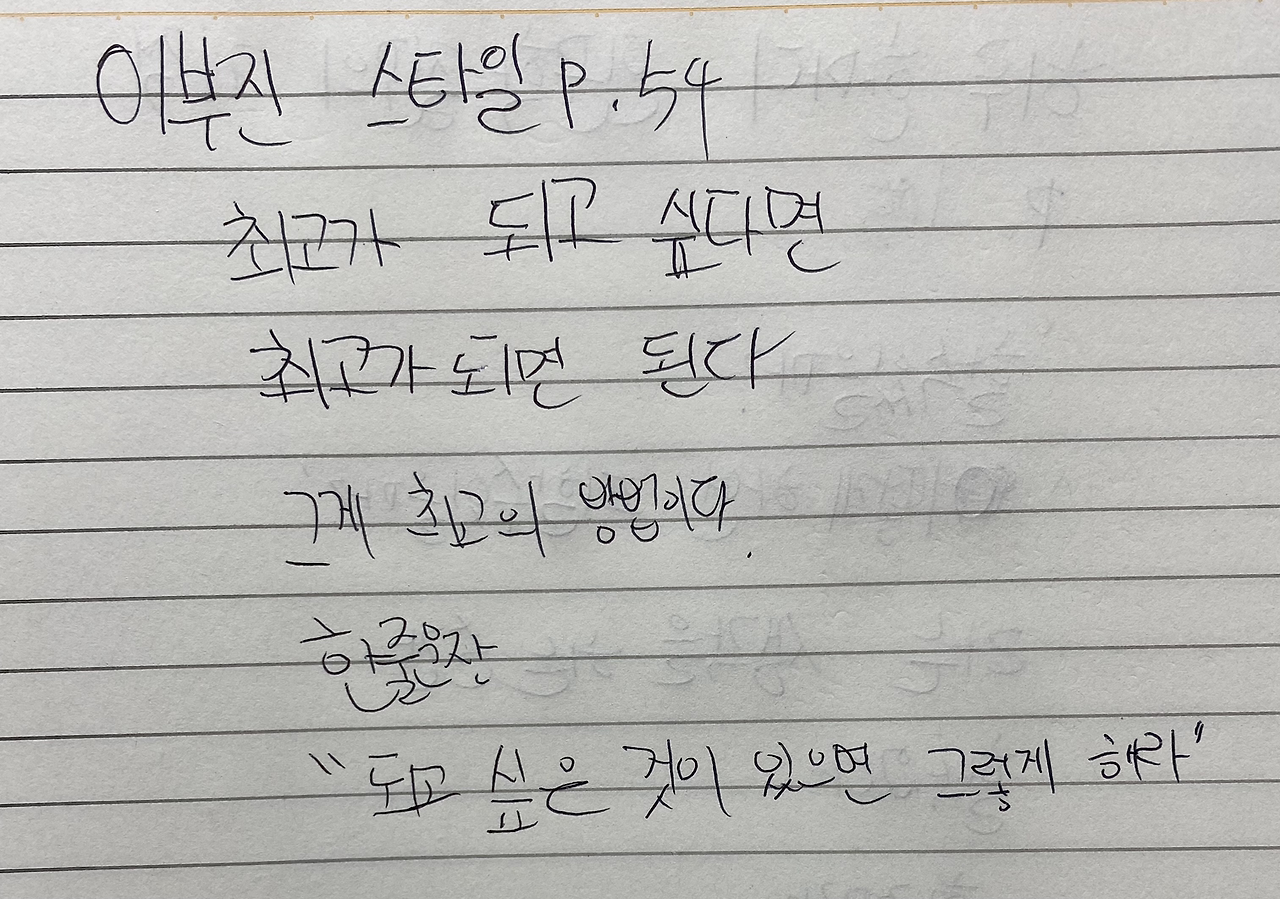 이부진 스타일 P.54
최고가 되고 싶다면
최고가 되면 된다
그게 최고의 방법이다.
한줄문장
"되고 싶은 것이 있으면 그렇게 해라"